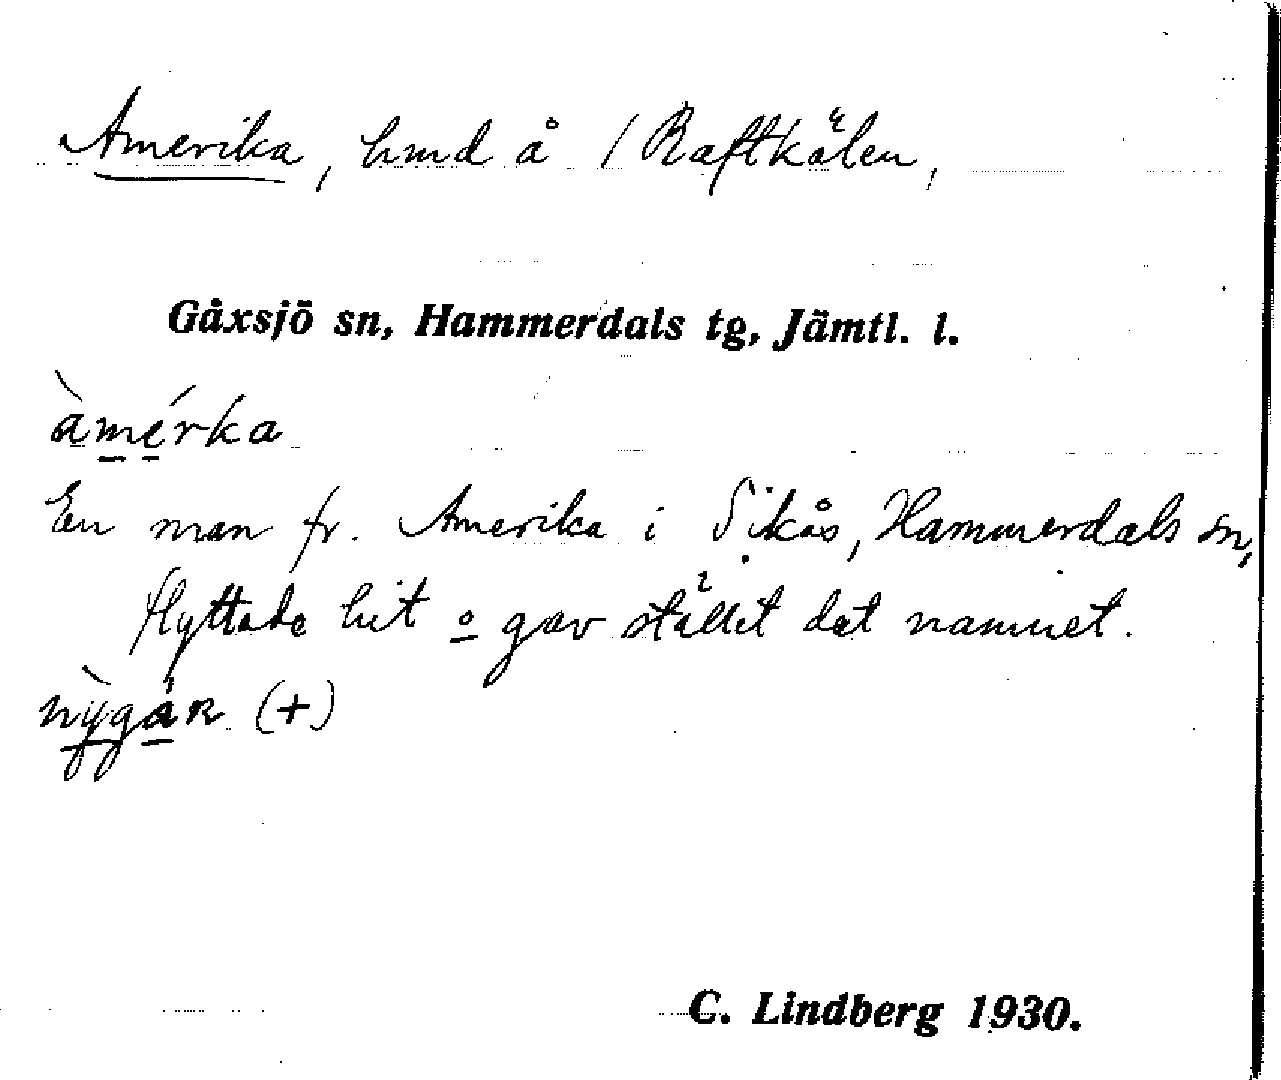 Amerika, hmd å 1 Raftkälen,
Gåxsjö sn, Hammerdals tg, Jämtl. l.
àmérka
En man fr. Amerika i Sikås, Hammerdals sn,
flyttade hit o gav stället det namnet.
nỳgáʀ (+)
C. Lindberg 1930.